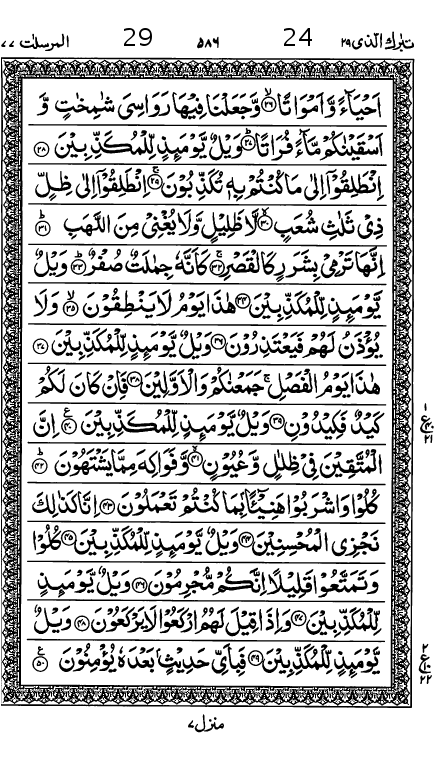 تبٰرك الذی ٢٩ 24 ٥٨٦ 29 المرسلات ٧٧
اَحْيَآءً وَّاَمْوَاتًا ﴿٢٦﴾ وَّجَعَلْنَا فِيْهَا رَوَاسِيَ شٰمِخٰتٍ وَّ
اَسْقَيْنٰكُمْ مَّآءً فُرَاتًا ﴿٢٧﴾ وَيْلٌ يَّوْمَىِٕذٍ لِّلْمُكَذِّبِيْنَ ﴿٢٨﴾
اِنْطَلِقُوْٓا اِلٰى مَا كُنْتُمْ بِهٖ تُكَذِّبُوْنَ ﴿٢٩﴾ اِنْطَلِقُوْٓا اِلٰى ظِلٍّ
ذِيْ ثَلٰثِ شُعَبٍ ﴿٣٠﴾ لَّا ظَلِيْلٍ وَّلَا يُغْنِيْ مِنَ اللَّهَبِ ﴿٣١﴾
اِنَّهَا تَرْمِيْ بِشَرَرٍ كَالْقَصْرِ ﴿٣٢﴾ كَاَنَّهٗ جِمٰلَتٌ صُفْرٌ ﴿٣٣﴾ وَيْلٌ
يَّوْمَىِٕذٍ لِّلْمُكَذِّبِيْنَ ﴿٣٤﴾ هٰذَا يَوْمُ لَا يَنْطِقُوْنَ ﴿٣٥﴾ وَلَا
يُؤْذَنُ لَهُمْ فَيَعْتَذِرُوْنَ ﴿٣٦﴾ وَيْلٌ يَّوْمَىِٕذٍ لِّلْمُكَذِّبِيْنَ ﴿٣٧﴾
هٰذَا يَوْمُ الْفَصْلِ ۚ جَمَعْنٰكُمْ وَالْاَوَّلِيْنَ ﴿٣٨﴾ فَاِنْ كَانَ لَكُمْ
كَيْدٌ فَكِيْدُوْنِ ﴿٣٩﴾ وَيْلٌ يَّوْمَىِٕذٍ لِّلْمُكَذِّبِيْنَ ﴿٤٠﴾ اِنَّ
الْمُتَّقِيْنَ فِيْ ظِلٰلٍ وَّعُيُوْنٍ ﴿٤١﴾ وَّفَوَاكِهَ مِمَّا يَشْتَهُوْنَ ﴿٤٢﴾
كُلُوْا وَاشْرَبُوْا هَنِيْٓئًۢا بِمَا كُنْتُمْ تَعْمَلُوْنَ ﴿٤٣﴾ اِنَّا كَذٰلِكَ
نَجْزِي الْمُحْسِنِيْنَ ﴿٤٤﴾ وَيْلٌ يَّوْمَىِٕذٍ لِّلْمُكَذِّبِيْنَ ﴿٤٥﴾ كُلُوْا
وَتَمَتَّعُوْا قَلِيْلًا اِنَّكُمْ مُّجْرِمُوْنَ ﴿٤٦﴾ وَيْلٌ يَّوْمَىِٕذٍ
لِّلْمُكَذِّبِيْنَ ﴿٤٧﴾ وَاِذَا قِيْلَ لَهُمُ ارْكَعُوْا لَا يَرْكَعُوْنَ ﴿٤٨﴾ وَيْلٌ
يَّوْمَىِٕذٍ لِّلْمُكَذِّبِيْنَ ﴿٤٩﴾ فَبِاَيِّ حَدِيْثٍۢ بَعْدَهٗ يُؤْمِنُوْنَ ﴿٥٠﴾
١
ع
٢١
٢
ع
٢٢
منزل ٧